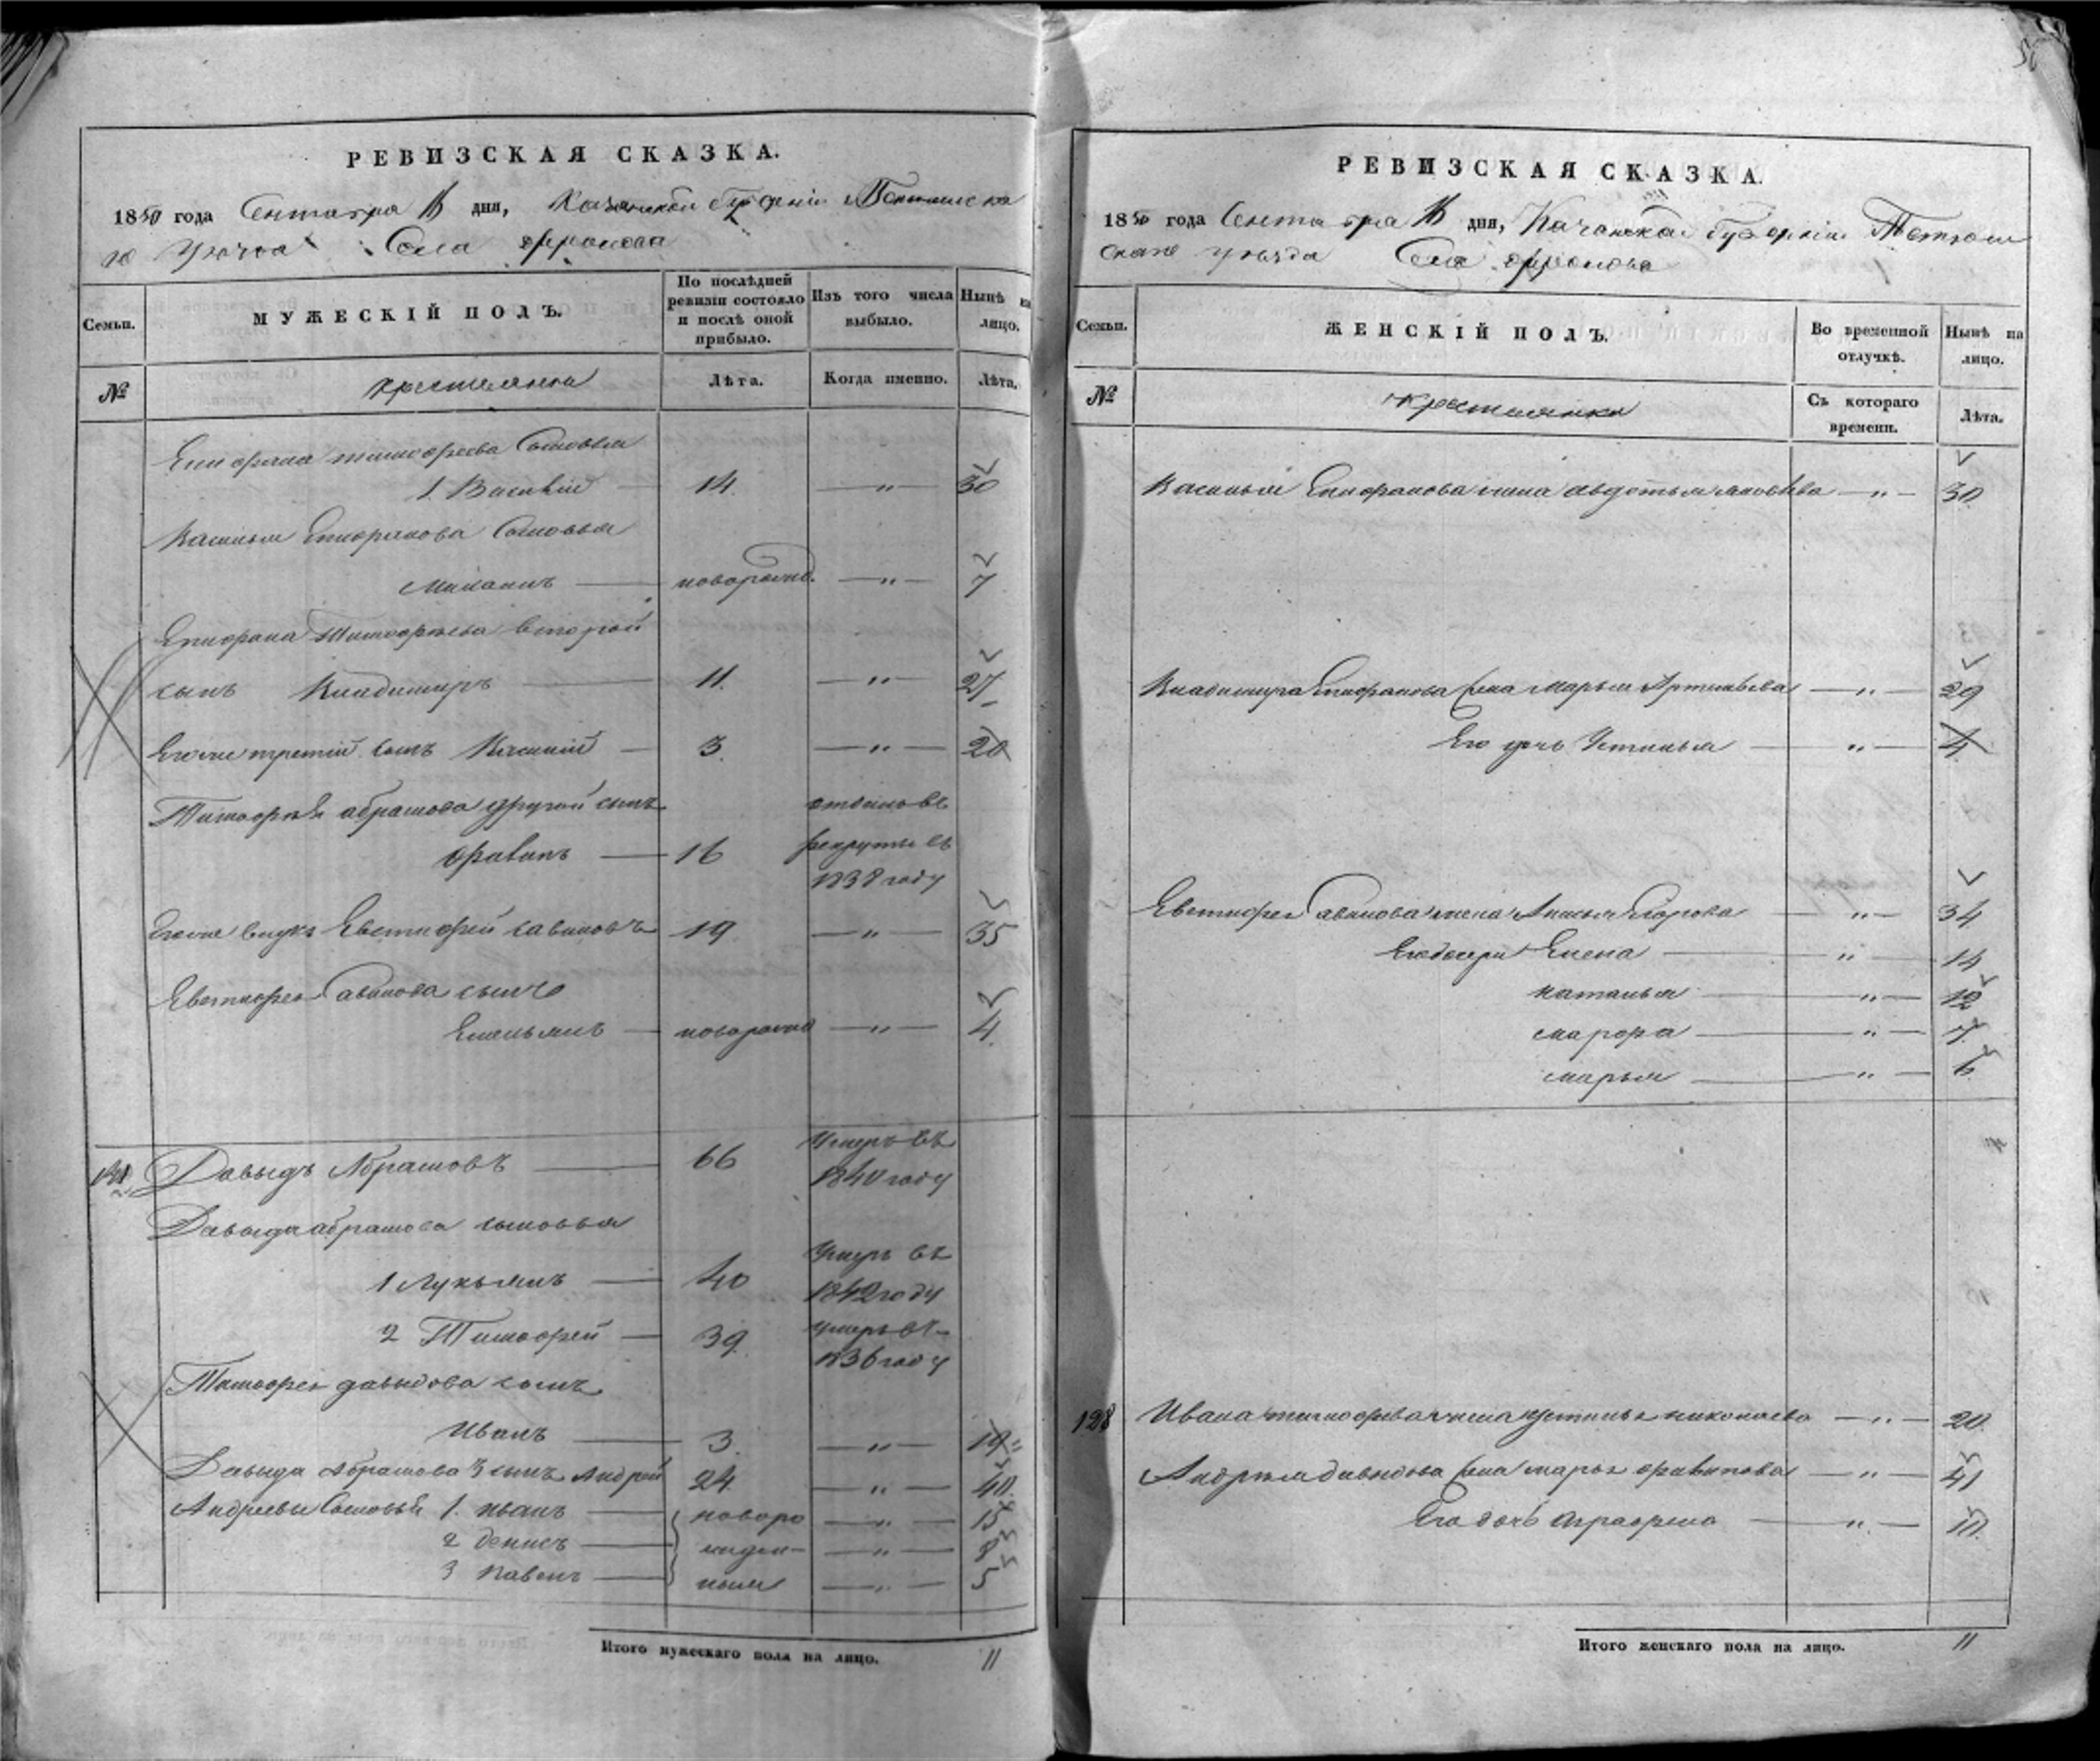 РЕВИЗСКАЯ СКАЗКА.
1850 года Сентября дня, Казанской Губерніи Тетюшска
го Уѣзда Села
Семьи.
МУЖЕСКІЙ ПОЛЪ.
По послѣдней ревизіи состояло и послѣ оной прибыло.
Изъ того числа выбыло.
Нынѣ на лицо.
№
крестьяне
Лѣта.
Когда именно.
Лѣта.
Епифана тимофеева Сыновья
1. Василій — 14. — „ — 30
Василья Епифанова Сыновья
новорожд. — „ — 7
Епифана Тимофѣева второй
сынъ Владимиръ — 11. — „ — 27
Его же третій сынъ — 3. — „ — 20
Тимофѣя абрамова другой сынъ
— 16
рекруты въ
1838 году
Его же внукъ Евстифей савиновъ 19 — „ — 35
Евстифея Савинова сынъ
Емельянъ — новорожд — „ — 4.
Давыдъ Абрамовъ — 66 Умеръ въ
1840 году
Давыда абрамова сыновья
1 Лукьянъ — 40 Умеръ въ
1842 году
2 Тимофей — 39. умеръ въ
1836 году
Тимофея давыдова сынъ
Иванъ — 3. — „ — 19
Давыда Абрамова 3 сынъ Андрей 24. — „ — 40.
Андреевы Сыновья 1. иванъ — новоро — „ — 15
2 денисъ — жден — „ — 8
3 павелъ — ныя — „ — 5
Итого мужескаго пола на лицо. 11
РЕВИЗСКАЯ СКАЗКА.
1850 года Сентября дня, Казанской Губерніи Тетюш
скаго уѣзда Села
Семьи.
ЖЕНСКІЙ ПОЛЪ.
Во временной отлучкѣ.
Нынѣ на лицо.
№
крестьянки
Съ котораго времени.
Лѣта.
Василья Епифанова жена авдотья яковлева — „ — 30
Владимира Епифанова жена марья Артемьева — „ — 29
Его дочь Устинья — „ — 4
Евстифея Савинова жена Анисья Егорова — „ — 34
Его дочери Елена — „ — 14
наталья — „ — 12
марфа — „ — 7.
марья — „ — 6
128 Ивана тимофеева жена устинья николаева — „ — 20.
Андрея давыдова жена марья — „ — 41
Его дочь аграфена — „ — 10.
Итого женскаго пола на лицо. 11